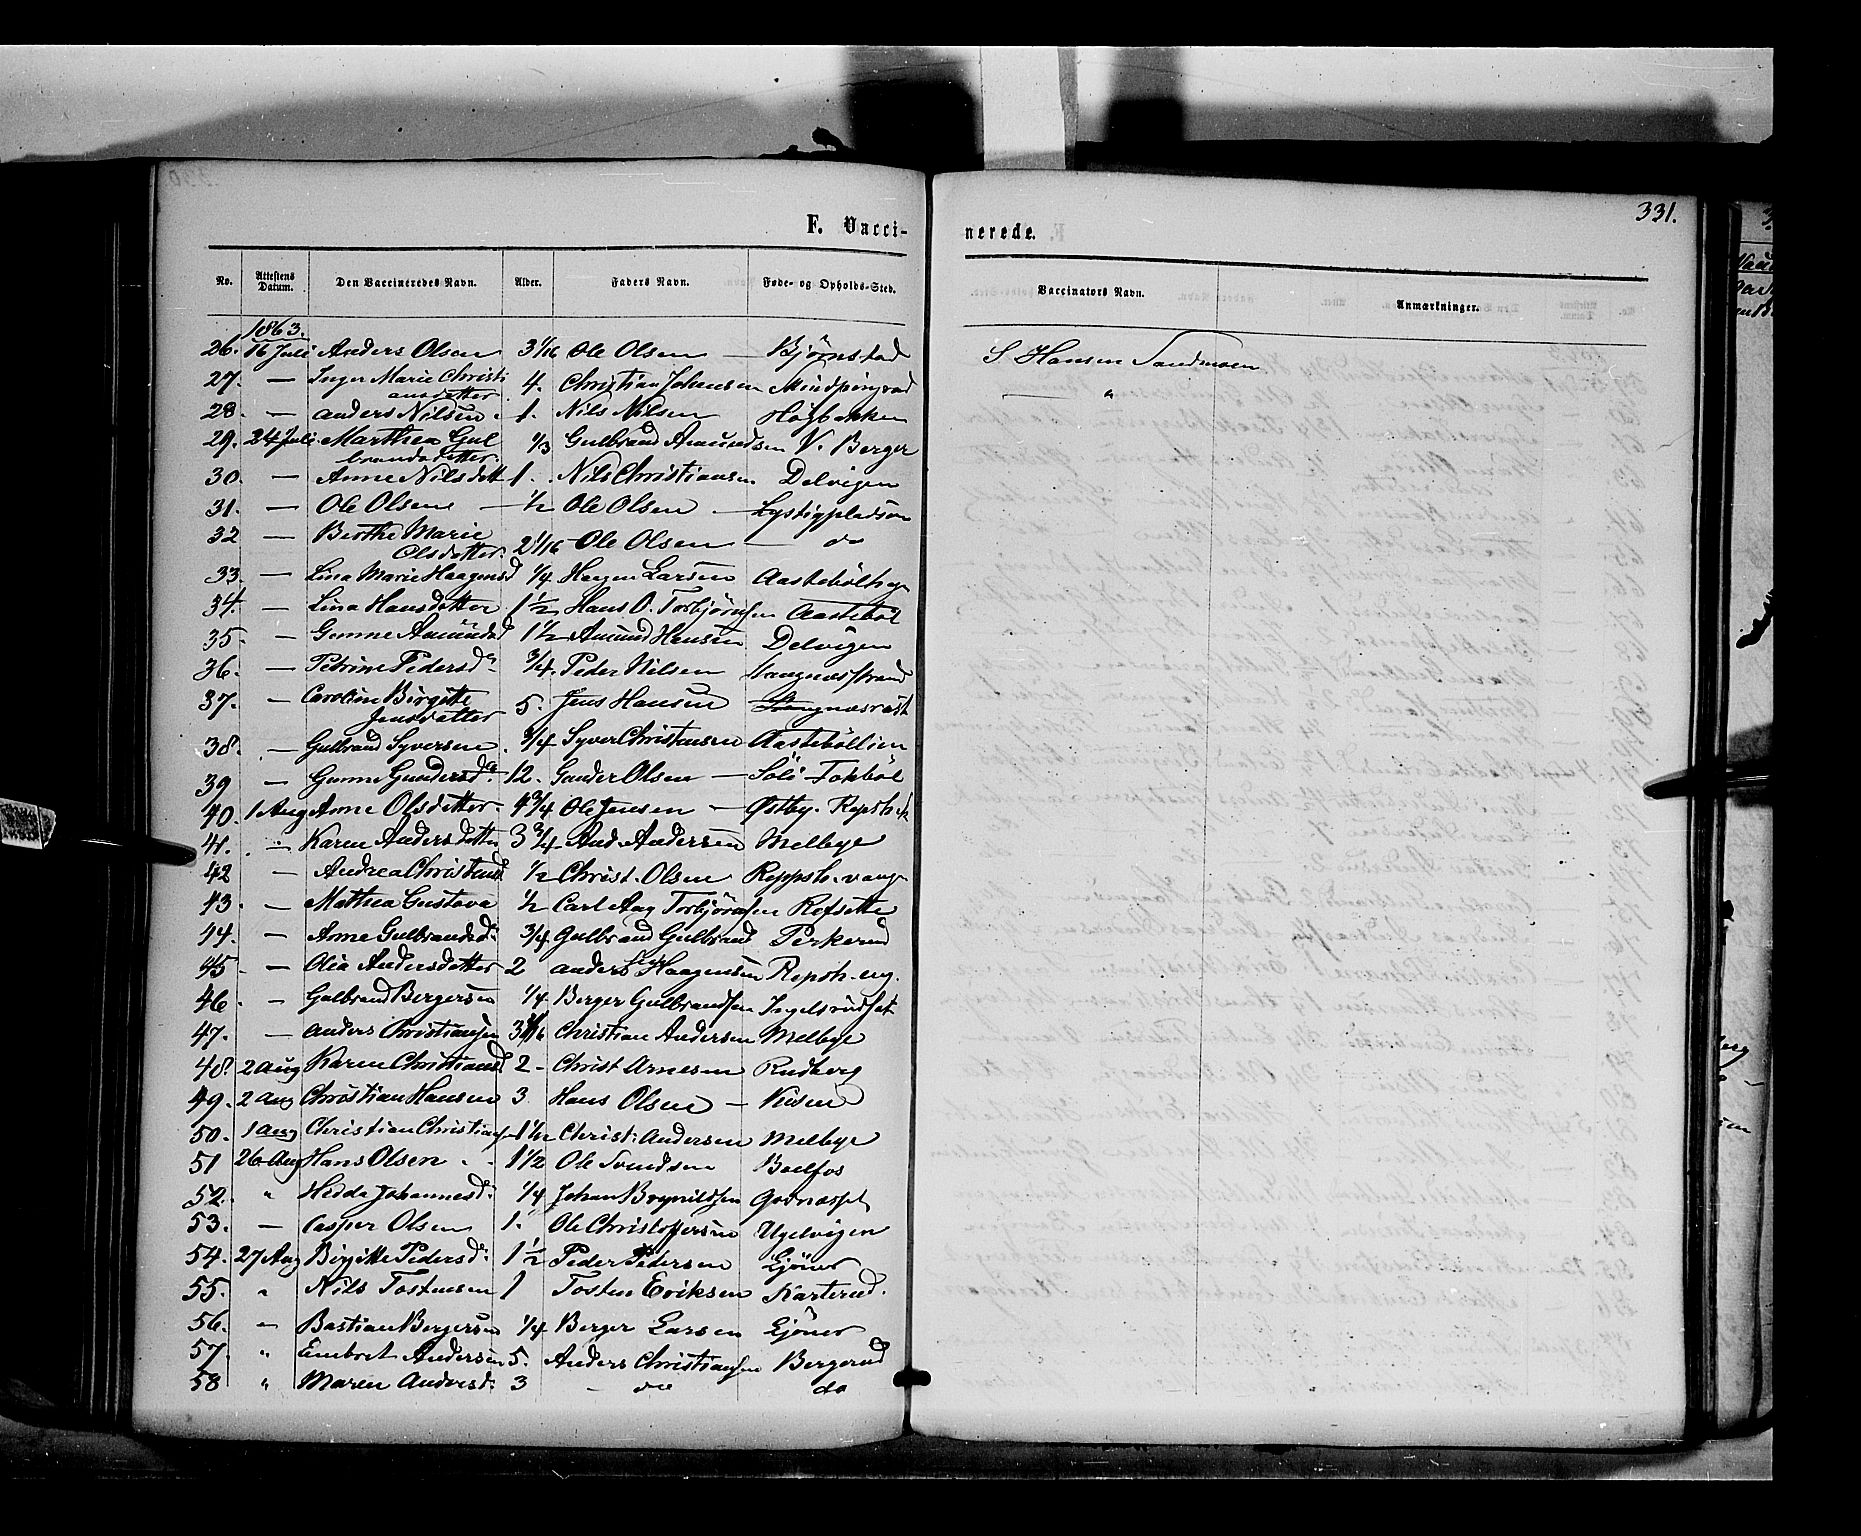 331.
F. Vacci-
nerede.
No. Attestens Datum. Den Vaccineredes Navn. Alder. Faders Navn. Føde- og Opholds-Sted. Vaccinators Navn. Anmærkninger.
1863.
26. 16 Juli Anders Olsen 3 1/16 Ole Olsen — Bjørnstad S Hansen Sandmoen
27. — Inger Marie Christi 4. Christian Johansen "
ansdetter
28. — Anders Nilsen. 1. Nils Nilsen Høgbakken
29. 24 Juli Marthea Gul 1/3 Gulbrand Amundsen V. Berger
brandsdetter.
30. — Anne Nilsdett 1. Nils Christiansen Delvigen
31. — Ole Olsen — 1/2 Ole Olsen — Lystigpladsen
32 — Berthe Marie
Olsdetter. 2 1/16 Ole Olsen — do
33. — Lina Marie Haagensd 1/4 Haagen Larsen
34. — Lina Hansdetter 1 1/2 Hans O. Torbjörnsen Aasteböl
35. — Gunne Amundsd 1 1/2 Amund Hansen Delvigen
36. — Petrine Pedersd. 3/4. Peder Nilsen Vangnæsstrand
37. — Caroline Birgitte 5. Jens Hansen
Jensdatter
38. — Gulbrand Syversen. 3/4 Syver Christensen Aasteböllien
39 — Gunne Gundersd. 12. Gunder Olsen — Föli
40. 1 Aug Anne Olsdetter. 4 3/4 Ole Jensen — Østby. Repsh.
41. — Karen Andersdetter 3 3/4 And. Andersen Melbye
42 — Andrea Christensd 1/2 Christ. Olsen Reppsh. vang
43. — Mathea Gustava 1/2 Carl Aug Torbjörnsen Refsette
44. — Anne Gulbrandsd. 3/4 Gulbrand Gulbrand Perkerud
45. — Olia Andersdetter 2 Anders Haagensen Repsh. eng.
46. — Gulbrand Bergersen 1/4 Berger Gulbrandsen Ingelsrudset
47. — Anders Christiansen 3 1/16 Christian Andersen Melbye
48. 2 Aug Karen Christiansd 2 - Christ Arnesen Rudberg
49. 2 Aug Christian Hansen 3. Hans Olsen —
50. 1 Aug Christian Christiansen Christ. Andersen Melbye
51 26 Aug Hans Olsen 1 1/2 Ole Svendsen Boelfos
52. " Hedda Johannesd. 1/4 Johan Brynildsen Godnæsset
53. — Casper Olsen 1. Ole Christoffersen Ugelvigen
54. 27 Aug Birgitte Pedersd. 1 1/2 Peder Pedersen Ljöner
55. " Nils Tostensen 1 Tosten Eriksen Karterud.
56. — Bastian Bergersen 1/4 Berger Larsen Ljöner
57. " Embret Andersen 5. Anders Christiansen Bergerud
58 " Maren Andersd. 3 — do do